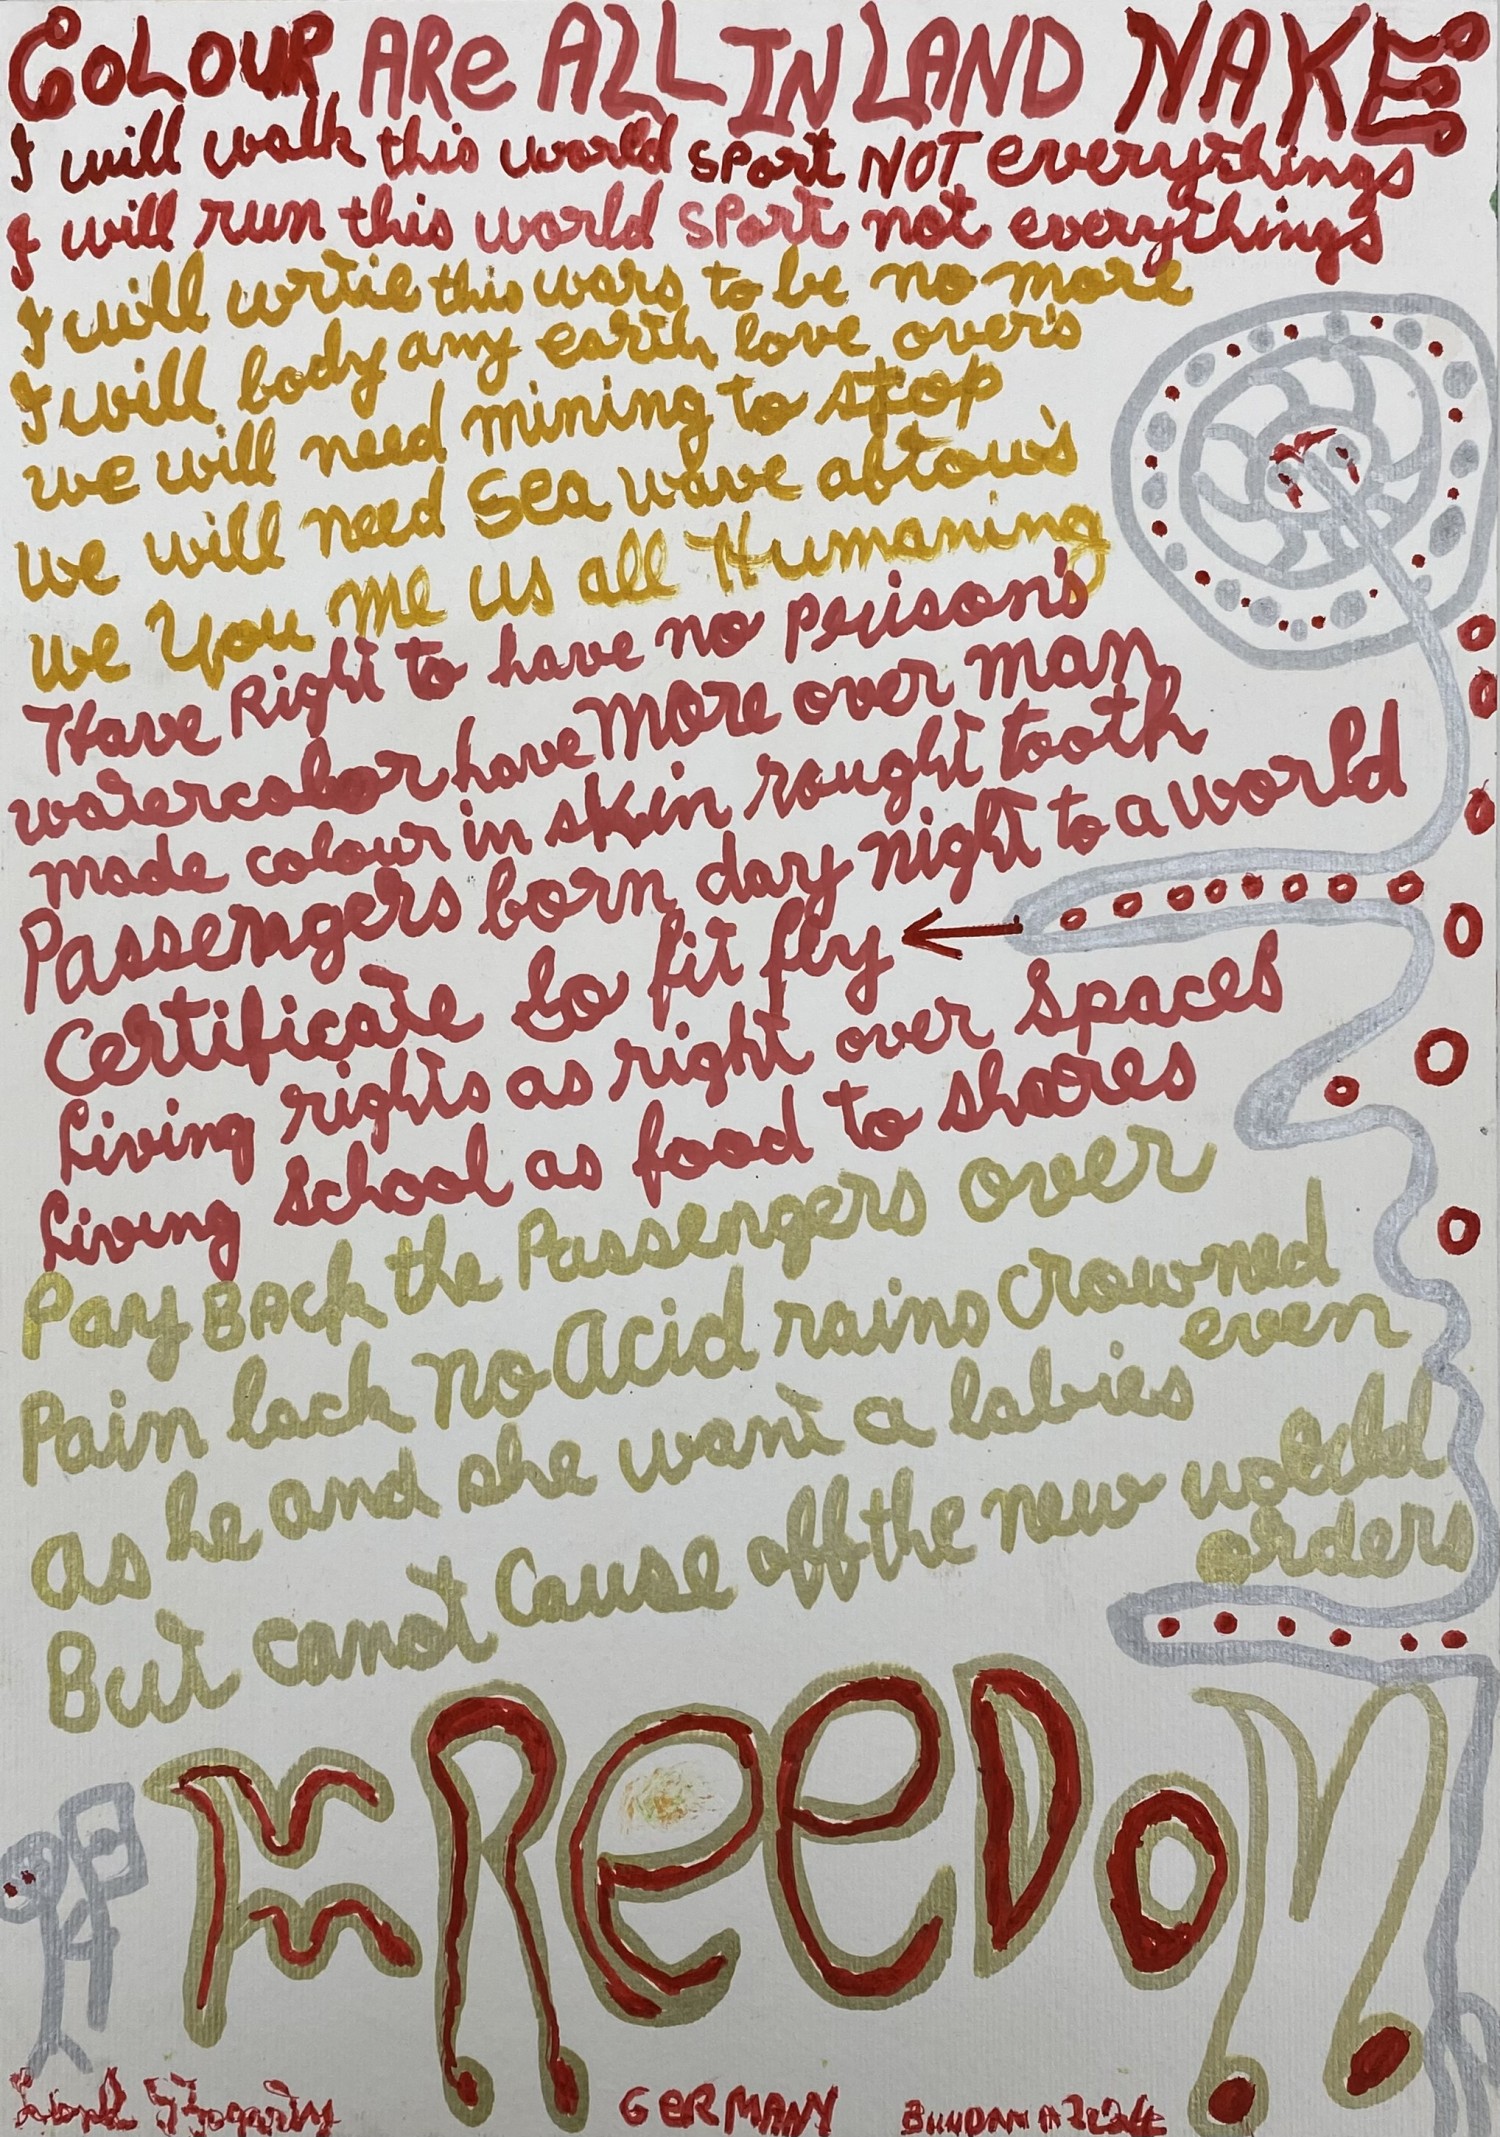 COLOUR ARe ALL IN LAND NAKE
I will walk this world sport NOT everythings
I will run this world sport not everythings
I will wrtie this wars to be no more
I will body any earth love over's
we will need mining to stop
we will need sea wave abtow's
we you me us all Humaning
Have Right to have no prison's
watercolor have more over man
made colour in skin rought tooth
Passengers born day night to a world
certificate to fit fly
living rights as right over spaces
living school as food to shares
Pay BACK the Passengers over
Pain lack no Acid rains crowned
as he and she want a labies even
But canot cause off the new world
orders
FReeDoM
GERMANY